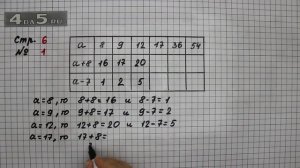 4ДЗ.RU
Стр. 6
№ 1
a 8 9 12 17 36 54
a+8 16 17 20
a-7 1 2 5
a=8, то 8+8=16 и 8-7=1
a=9, то 9+8=17 и 9-7=2
a=12, то 12+8=20 и 12-7=5
a=17, то 17+8=